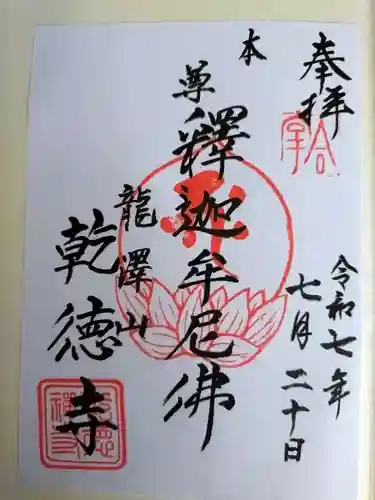 奉拝
合掌
令和七年
七月二十日
本尊
釋迦牟尼佛
龍澤山
乾徳寺